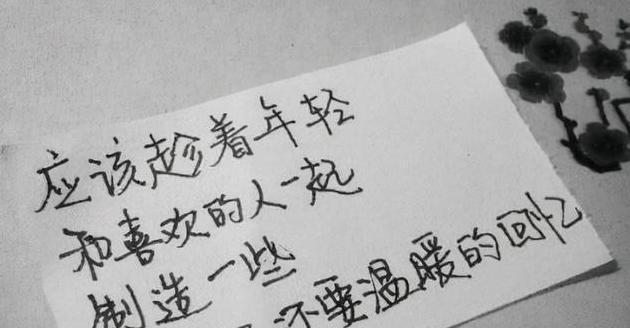 应该趁着年轻
和喜欢的人一起
制造一些
还要温暖的回忆